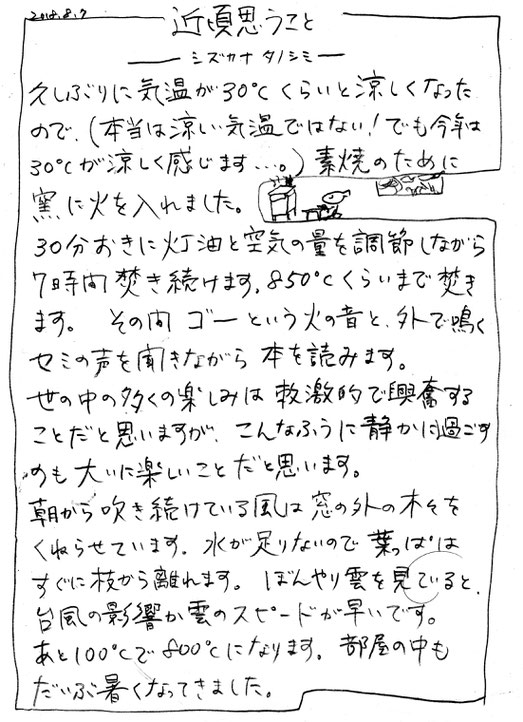 2018.8.7
近頃思うこと
シズカナ タノシミ
久しぶりに気温が30℃くらいと涼しくなった
ので、(本当は涼しい気温ではない!でも今年は
30℃が涼しく感じます…。)素焼のために
窯に火を入れました。
30分おきに灯油と空気の量を調節しながら
7時間焚き続けます。850℃くらいまで焚き
ます。 その間 ゴーという火の音と、外で鳴く
セミの声を聞きながら 本を読みます。
世の中の多くの楽しみは 刺激的で興奮する
ことだと思いますが、こんなふうに静かに過ごす
のも大いに楽しいことだと思います。
朝から吹き続けている風は 窓の外の木々を
くねらせています。水が足りないので 葉っぱは
すぐに枝から離れます。 ぼんやり雲を見ていると、
台風の影響か雲のスピードが早いです。
あと100℃で800℃になります。 部屋の中も
だいぶ暑くなってきました。